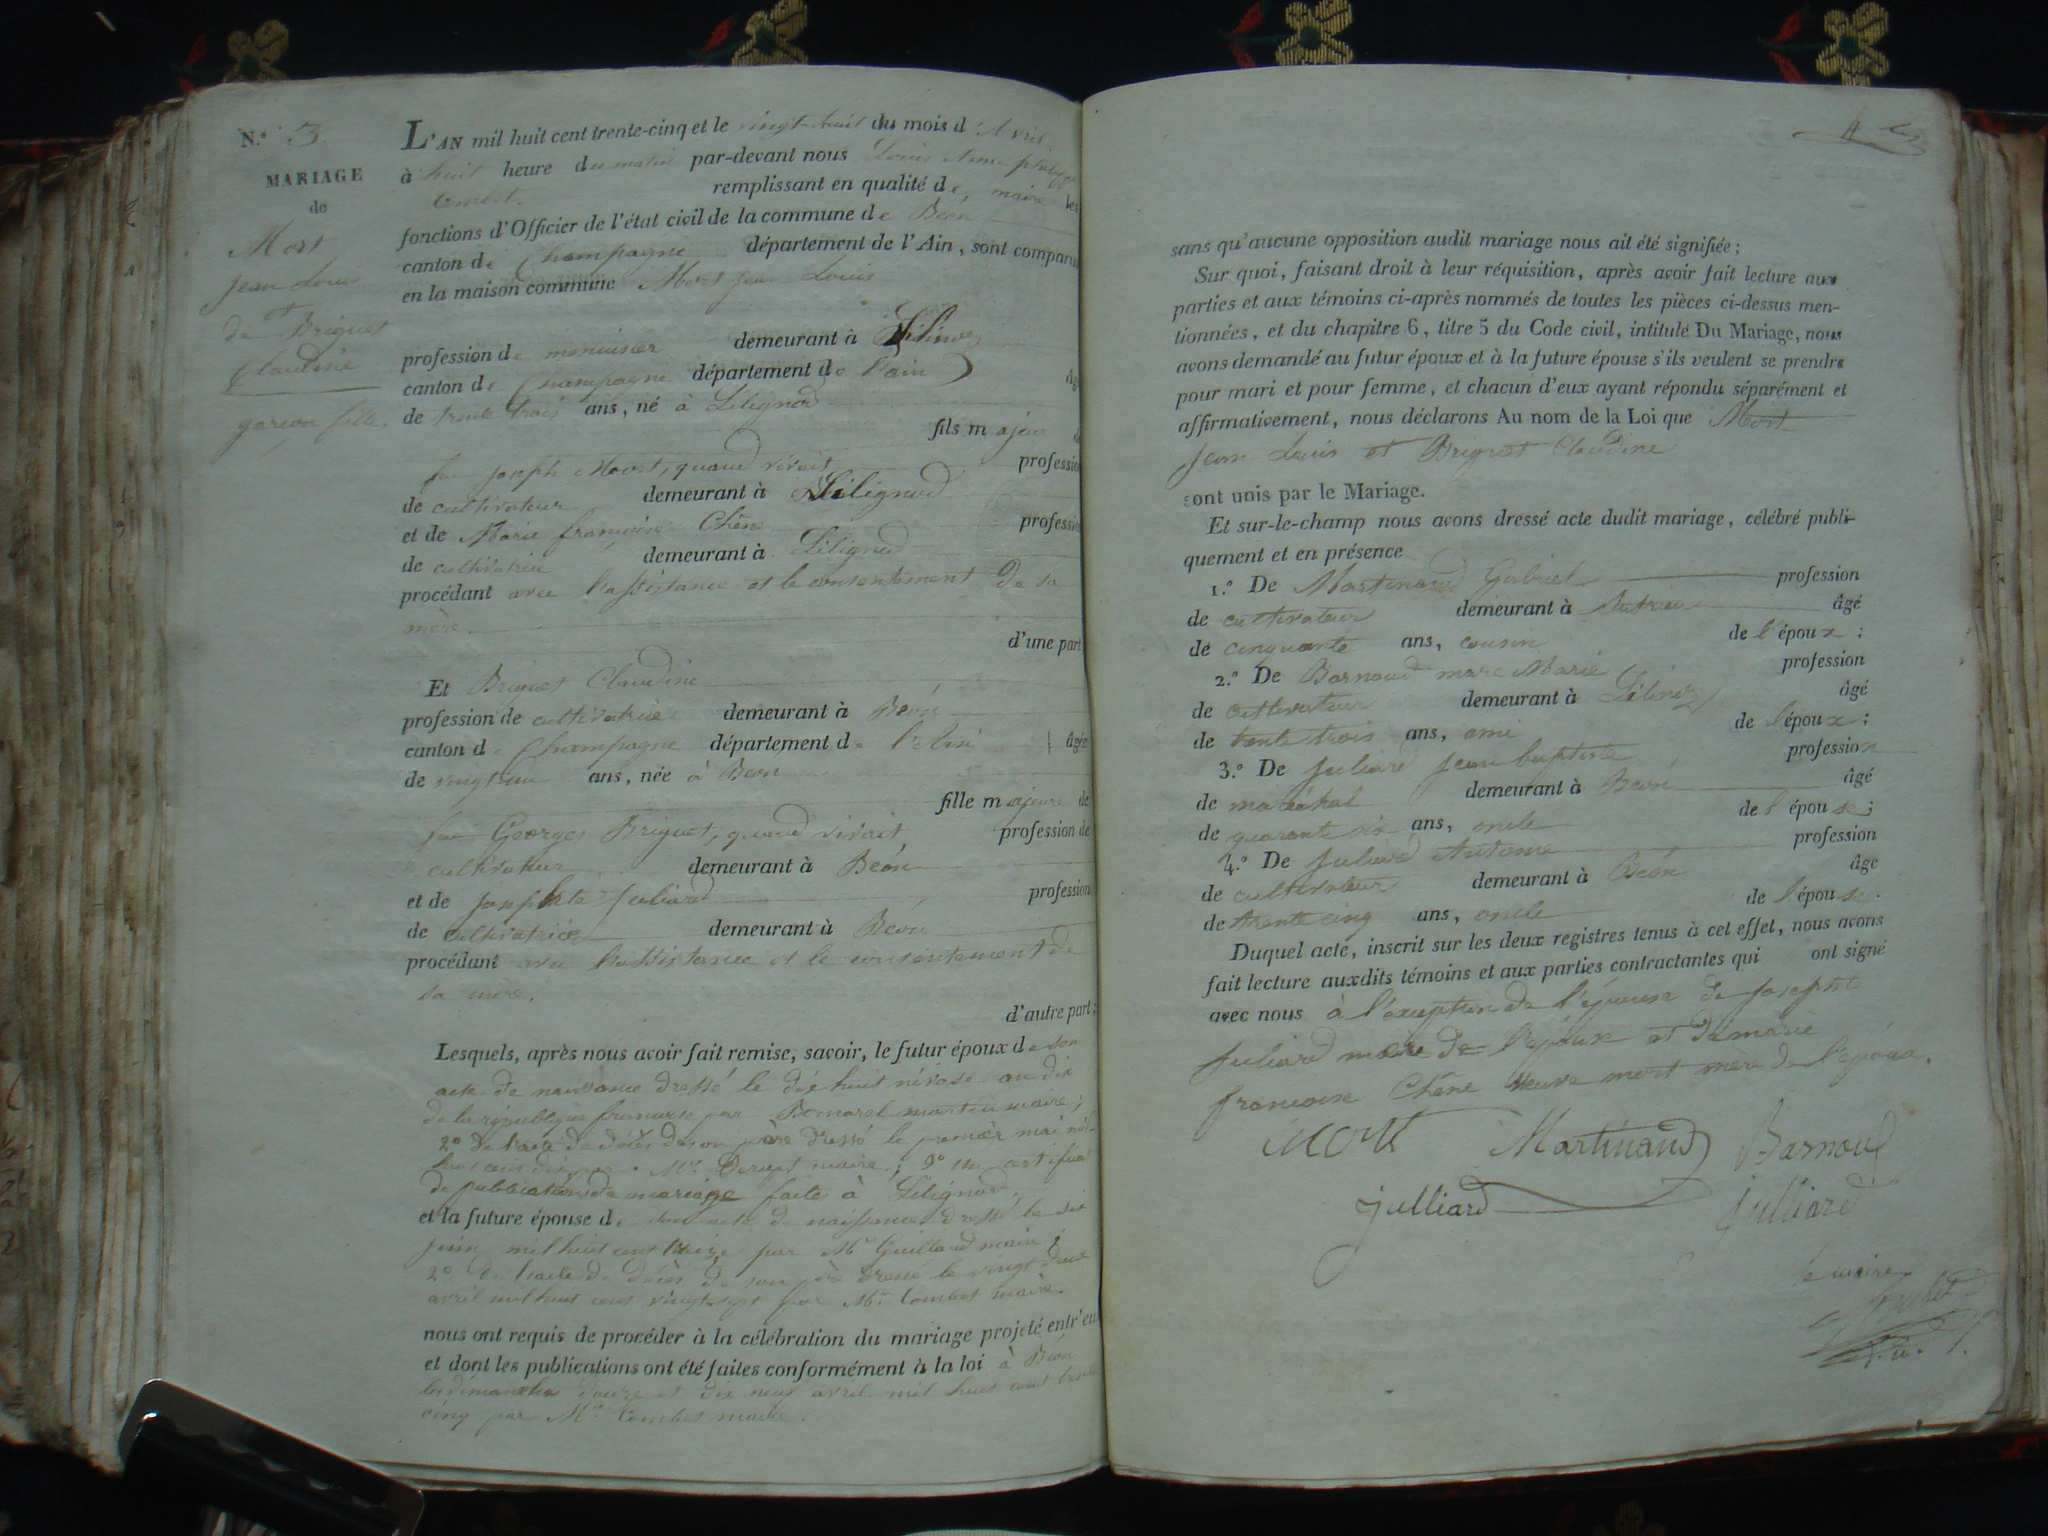 N.º 3.
MARIAGE
de
Mort
Jean Louis
de Briguet
Claudine
garçon fille.
L'AN mil huit cent trente-cinq et le vingt-huit du mois d'Avril
à huit heure du matin par-devant nous Louis
remplissant en qualité de maire les
fonctions d'Officier de l'état civil de la commune de Béon
canton de Champagne département de l'Ain, sont comparus
en la maison commune Mort Jean Louis
profession de menuisier demeurant à
canton de Champagne département de l'ain âgé
de trente trois ans, né à Lilignod
fils majeur
feu joseph Mort, quand vivait profession
de cultivateur demeurant à Lilignod
et de Marie françoise Chêne profession
de cultivatrice demeurant à Lilignod
procédant avec l'assistance et le consentement de sa
mère.
d'une part
Et Briguet Claudine
profession de cultivatrice demeurant à Béon
canton de Champagne département de l'Ain âgée
de vingt un ans, née à Béon
fille majeure de
feu Georges Briguet, quand vivait profession de
cultivateur demeurant à Béon
et de josephte Juliard profession
de cultivatrice demeurant à Béon
procédant avec l'assistance et le consentement de
sa mère.
d'autre part;
Lesquels, après nous avoir fait remise, savoir, le futur époux de son
acte de naissance dressé le dix huit nivose an dix
de la république française par martin maire;
2º de l'acte de décès de son père dressé le premier mai mil
huit cent maire; 3º un certificat
de publication de mariage faites à Lilignod.
et la future épouse de son acte de naissance dressé le six
juin mil huit cent treize par Mr Guilland maire;
2º de l'acte de décès de son père dressé le vingt deux
avril mil huit cent vingt sept par Mr Combet maire.
nous ont requis de procéder à la célébration du mariage projeté entr'eux
et dont les publications ont été faites conformément à la loi à Béon
les dimanches douze et dix neuf avril mil huit cent trente
cinq par Mr Combet maire.
4
sans qu'aucune opposition audit mariage nous ait été signifiée;
Sur quoi, faisant droit à leur réquisition, après avoir fait lecture aux
parties et aux témoins ci-après nommés de toutes les pièces ci-dessus men-
tionnées, et du chapitre 6, titre 5 du Code civil, intitulé Du Mariage, nous
avons demandé au futur époux et à la future épouse s'ils veulent se prendre
pour mari et pour femme, et chacun d'eux ayant répondu séparément et
affirmativement, nous déclarons Au nom de la Loi que Mort
Jean Louis et Briguet Claudine
sont unis par le Mariage.
Et sur-le-champ nous avons dressé acte dudit mariage, célébré publi-
quement et en présence
1.º De Martinand Gabriel profession
de cultivateur demeurant à âgé
de cinquante ans, cousin de l'époux;
2.º De Barnoud marc Marie profession
de cultivateur demeurant à âgé
de trente trois ans, ami de l'époux;
3.º De Juliard Jean baptiste profession
de maréchal demeurant à Béon âgé
de quarante six ans, oncle de l'épouse;
4.º De Juliard Antoine profession
de cultivateur demeurant à Béon âgé
de trente cinq ans, oncle de l'épouse.
Duquel acte, inscrit sur les deux registres tenus à cet effet, nous avons
fait lecture auxdits témoins et aux parties contractantes qui ont signé
avec nous à l'exception de l'épouse de Josephte
Juliard mère de l'épouse et de marie
françoise Chêne veuve mort mère de l'époux.
MORT Martinand Barnoud
Julliard Julliard
le maire